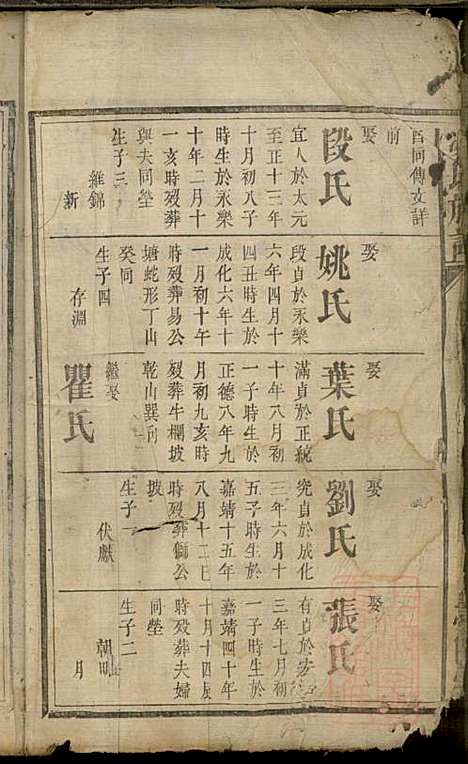 酉同傳文詳
前
娶
段氏
宜人於太元
至正十三年
十月初八子
時生於永樂
十年二月十
一亥時歿葬
與夫同塋
生子三
維錦
新
娶
姚氏
段貞於永樂
六年四月十
四丑時生於
成化六年十
一月初十午
時歿葬易公
塘蛇形丁山
癸向
生子四
存淵
娶
葉氏
滿貞於正統
十年八月初
一子時生於
正德八年九
月初九亥時
歿葬牛欄坡
乾山巽向
繼娶
瞿氏
娶
劉氏
究貞於成化
三年六月十
五子時生於
嘉靖十五年
八月十二巳
時歿葬獅公
坡
生子一
伏獻
娶
張氏
有貞於
三年七月初
一子時生於
嘉靖四十年
十月十四辰
時歿葬夫婦
同塋
生子二
朝明
月